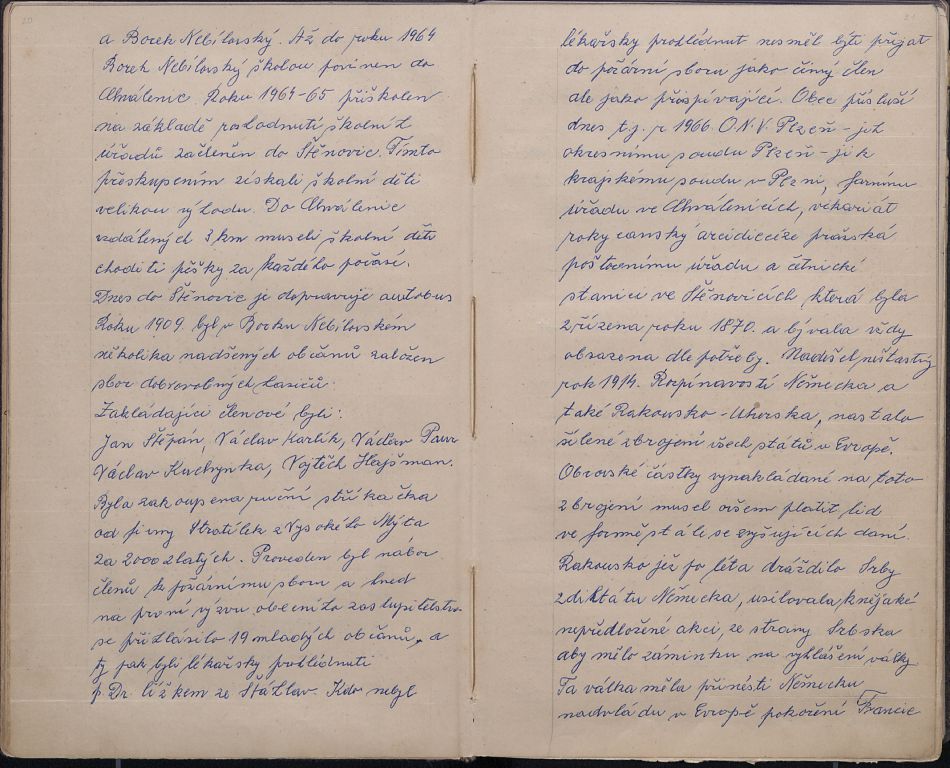 20
a Borek Nebílovský. Až do roku 1964
Borek Nebílovský školou povinen do
Chválenic. Roku 1964-65 přiškolen
na základě rozhodnutí školních
úřadů začleněn do Štěnovic. Tímto
přeskupením získali školní děti
velikou výhodu. Do Chválenic
vzdálených 3 km museli školní děti
choditi pěšky za každého počasí.
Dnes do Štěnovic je dopravuje autobus
Roku 1909. byl v Borku Nebílovském
několika nadšených občanů založen
sbor dobrovolných hasičů:
Zakládající členové byli:
Jan Štěpán, Václav Karlík, Václav Paur
Václav Kuchynka, Vojtěch Hajšman.
Byla zakoupena ruční stříkačka
od firmy Stratílek z Vysokého Mýta
za 2000 zlatých. Proveden byl nábor
členů k požárnímu sboru a hned
na první výzvu obecního zastupitelstva
se přihlásilo 19 mladých občanů, a
ty pak byli lékařsky prohlédnuti
p Dr. ze Šťáhlav. Kdo nebyl
21
lékařsky prohlédnut nesměl býti přijat
do požární sboru jako činný člen
ale jako přispívající. Obec přísluší
dnes t.j. r 1966. O.N.V. Plzeň - jih
okresnímu soudu Plzeň - jih
krajskému soudu v Plzni, farnímu
úřadu ve Chválenicích, vikariát
rokycanský arcidiecéze pražská
poštovnímu úřadu a četnické
stanici ve Štěnovicích která byla
zřízena roku 1870. a bývala vždy
obsazena dle potřeby. Nadešel nešťastný
rok 1914. Rozpínavostí Německa a
také Rakousko-Uherska, nastalo
šílené zbrojení všech států v Evropě.
Obrovské částky vynakládané na toto
zbrojení musel ovšem platit lid
ve formě stále se zvyšujících daní.
Rakousko již po léta dráždilo Srby
z diktátu Německa, usilovala, k nějaké
nepředložené akci, ze strany Srbska
aby mělo záminku na vyhlášení války
Ta válka měla přinésti Německu
nadvládu v Evropě pokoření Francie